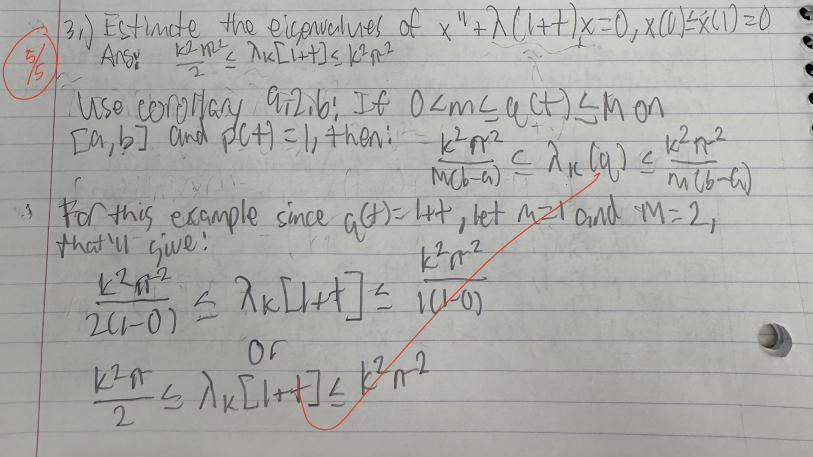 5/5
3.) Estimate the eigenvalues of x'' + λ(1+t)x=0, x(0)≤x(1)=0
Ans: k²π²/2 ≤ λk[1+t] ≤ k²π²
Use corollary 9.2.b: If 0<m≤q(t)≤M on
[a,b] and p(t)=1, then: k²π²/M(b-a) ≤ λk(q) ≤ k²π²/m(b-a)
For this example since q(t)=1+t, let m=1 and M=2,
that'll give:
k²π²/2(1-0) ≤ λk[1+t] ≤ k²π²/1(1-0)
or
k²π/2 ≤ λk[1+t] ≤ k²π²